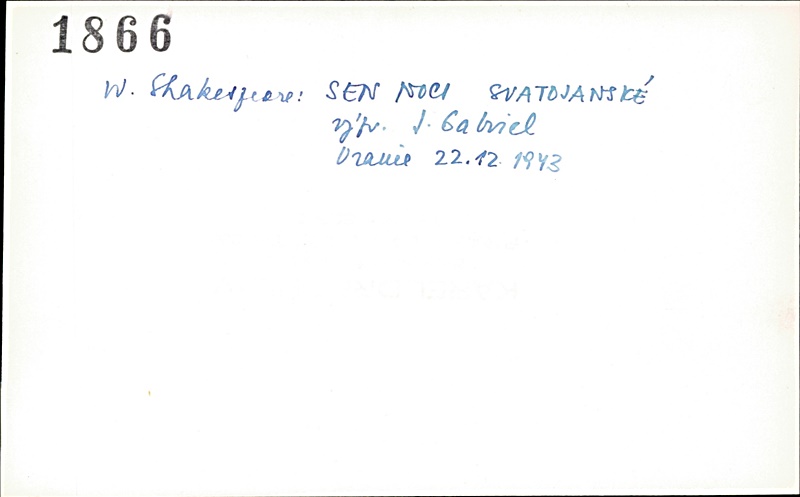 1866
W. Shakespeare: SEN NOCI SVATOJANSKÉ
výpr. J. Gabriel
Uranie 22.12.1943